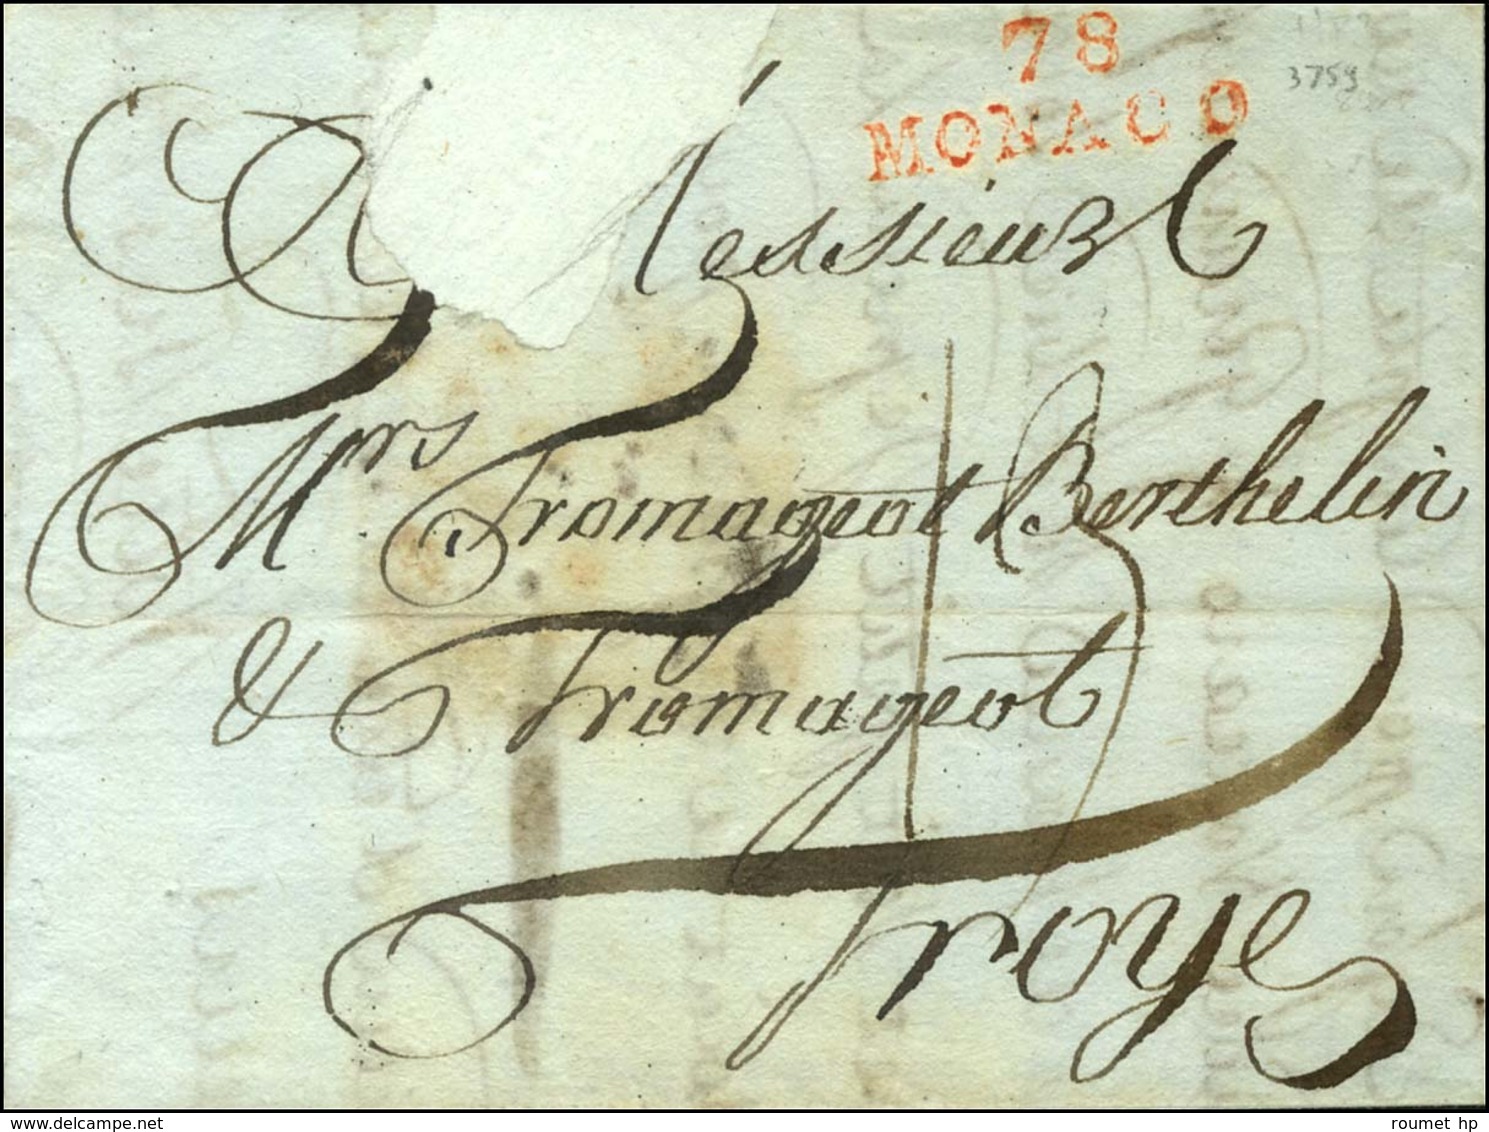 78
MONACO
3759
A Messieurs
Mrs Fromageot Berthelin
& Fromageot
13
Troyes
www.delcampe.net
roumet hp